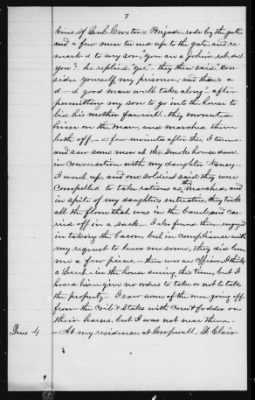 7
tions of Genl Croxtons Brigade rode by the gate
and a few men turned up to the gate and re
marked to my son, "You are a Johnie reb. aint
you" he replied, "yes" - they then said "Con
sider yourself my prisoner, and thare's a
d—d good man will take along" - after
permitting my son to go into the house to
bid his mother farewell, they mounted
him on the mare and marched them
both off, - a few minutes after this I turned
and saw some men at the smoke house door
in conversation with my daughter Nancy.
I went up, and one soldier said they were
compelled to take rations as they marched, and
in spite of my daughters entreaties, they took
all the flour that was in the barrel, and car
ried off in a sack. I also found them engaged
in taking the bacon, but in compliance with
my request to leave me some, they did leave
me a few pieces - there was an Officer, I think
a Lieut - in the house during this time, but I
heard him give no orders to take or not to take
the property. I saw some of the men going off
from the Crib & Stables with Corn & fodder on
their horses, but I was not near them.
Ans 4 - At my residence at Cropwell, St Clair